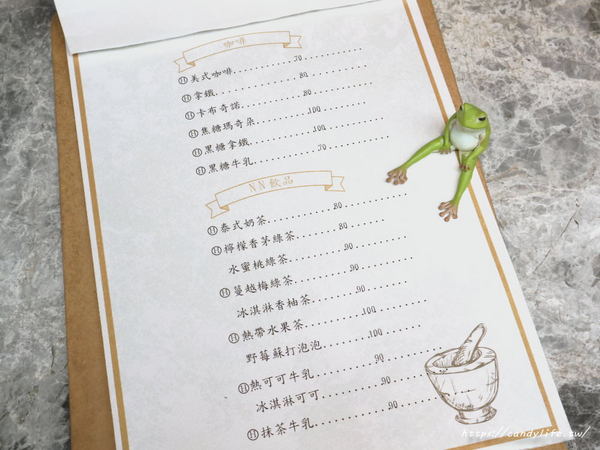 咖啡
Ⓗ美式咖啡..........70..........
Ⓗ拿鐵..........80..........
Ⓗ卡布奇諾..........80..........
Ⓗ焦糖瑪奇朵..........100..........
Ⓗ黑糖拿鐵..........100..........
Ⓗ黑糖牛乳..........70..........
NN飲品
Ⓗ泰式奶茶..........80..........
Ⓗ檸檬香茅綠茶..........80..........
水蜜桃綠茶..........90..........
Ⓗ蔓越梅綠茶..........90..........
冰淇淋香柚茶..........90..........
Ⓗ熱帶水果茶..........100..........
野莓蘇打泡泡..........100..........
Ⓗ熱可可牛乳..........90..........
冰淇淋可可..........90..........
Ⓗ抹茶牛乳..........90..........
https://candylife.tw/